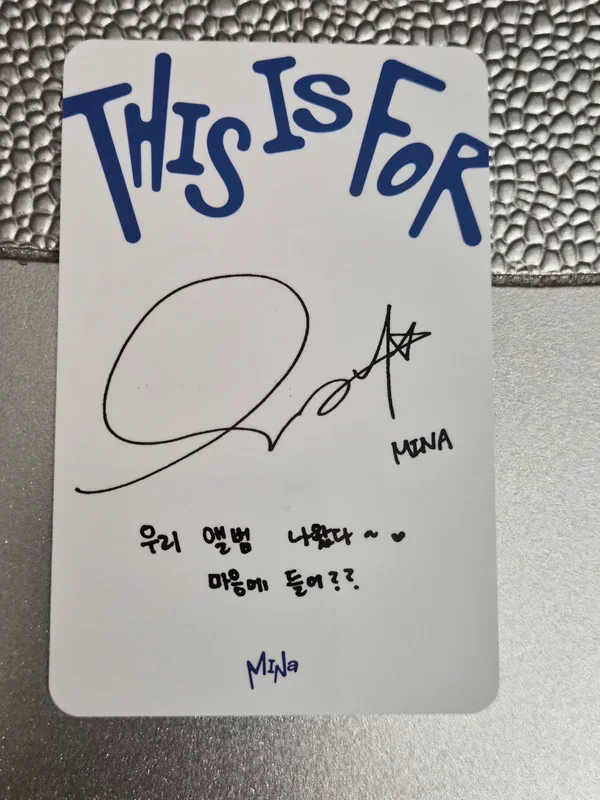 THIS IS FOR
MINA
우리 앨범 나왔다~♥
마음에 들어??
MINa